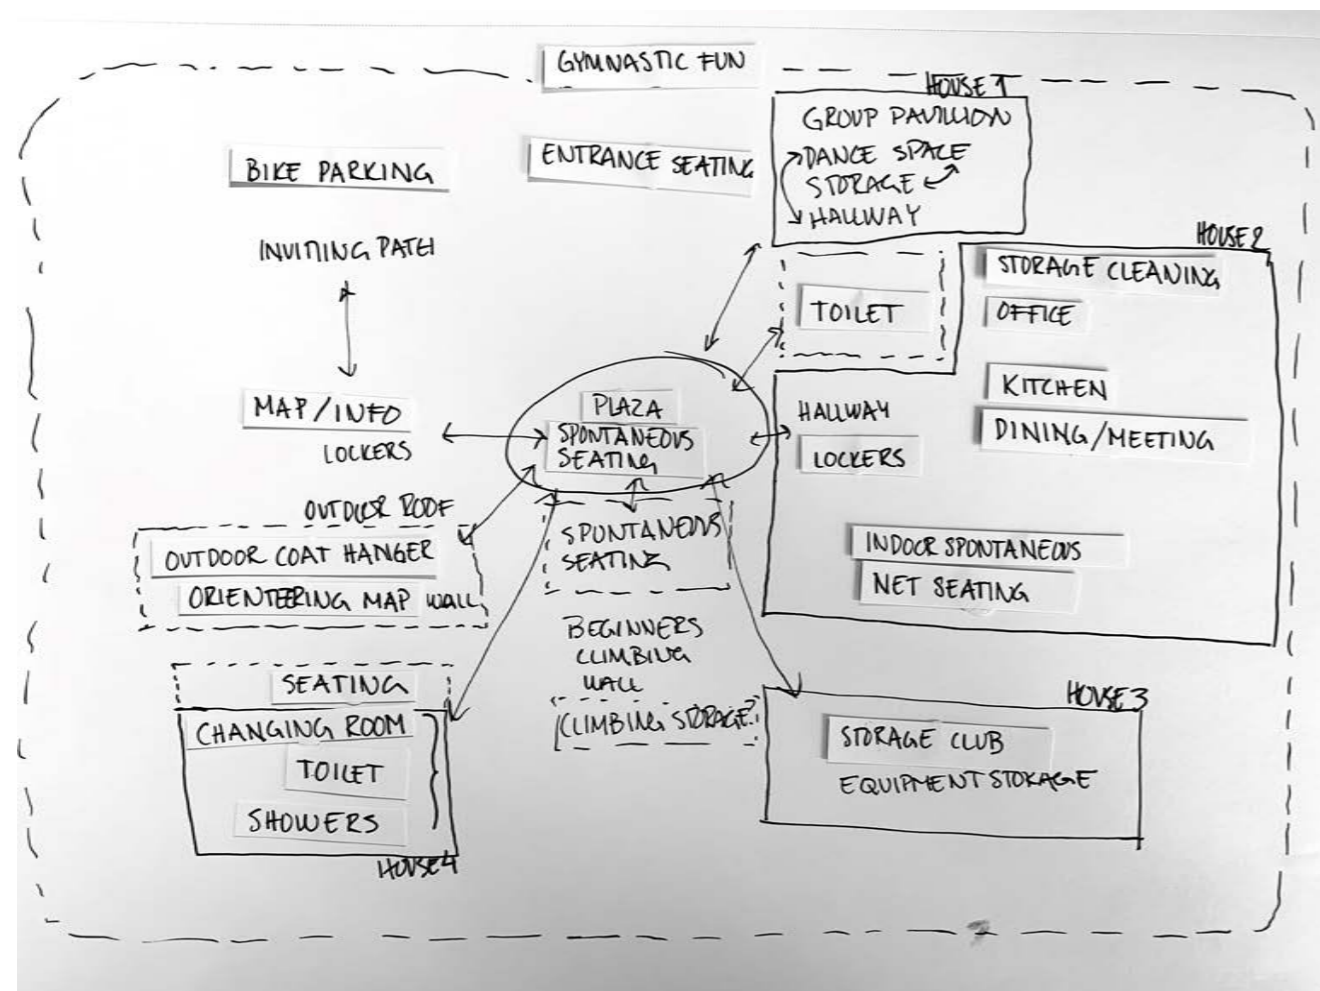 GYMNASTIC FUN
HOUSE 1
GROUP PAVILLION
DANCE SPACE
STORAGE
HALLWAY
ENTRANCE SEATING
BIKE PARKING
INVITING PATH
HOUSE 2
STORAGE CLEANING
OFFICE
KITCHEN
DINING/MEETING
TOILET
HALLWAY
LOCKERS
INDOOR SPONTANEOUS
NET SEATING
MAP/INFO
LOCKERS
PLAZA
SPONTANEOUS
SEATING
OUTDOOR ROOF
OUTDOOR COAT HANGER
ORIENTEERING MAP WALL
SPONTANEOUS
SEATING
BEGINNERS
CLIMBING
WALL
CLIMBING STORAGE?
SEATING
CHANGING ROOM
TOILET
SHOWERS
HOUSE 4
HOUSE 3
STORAGE CLUB
EQUIPMENT STORAGE